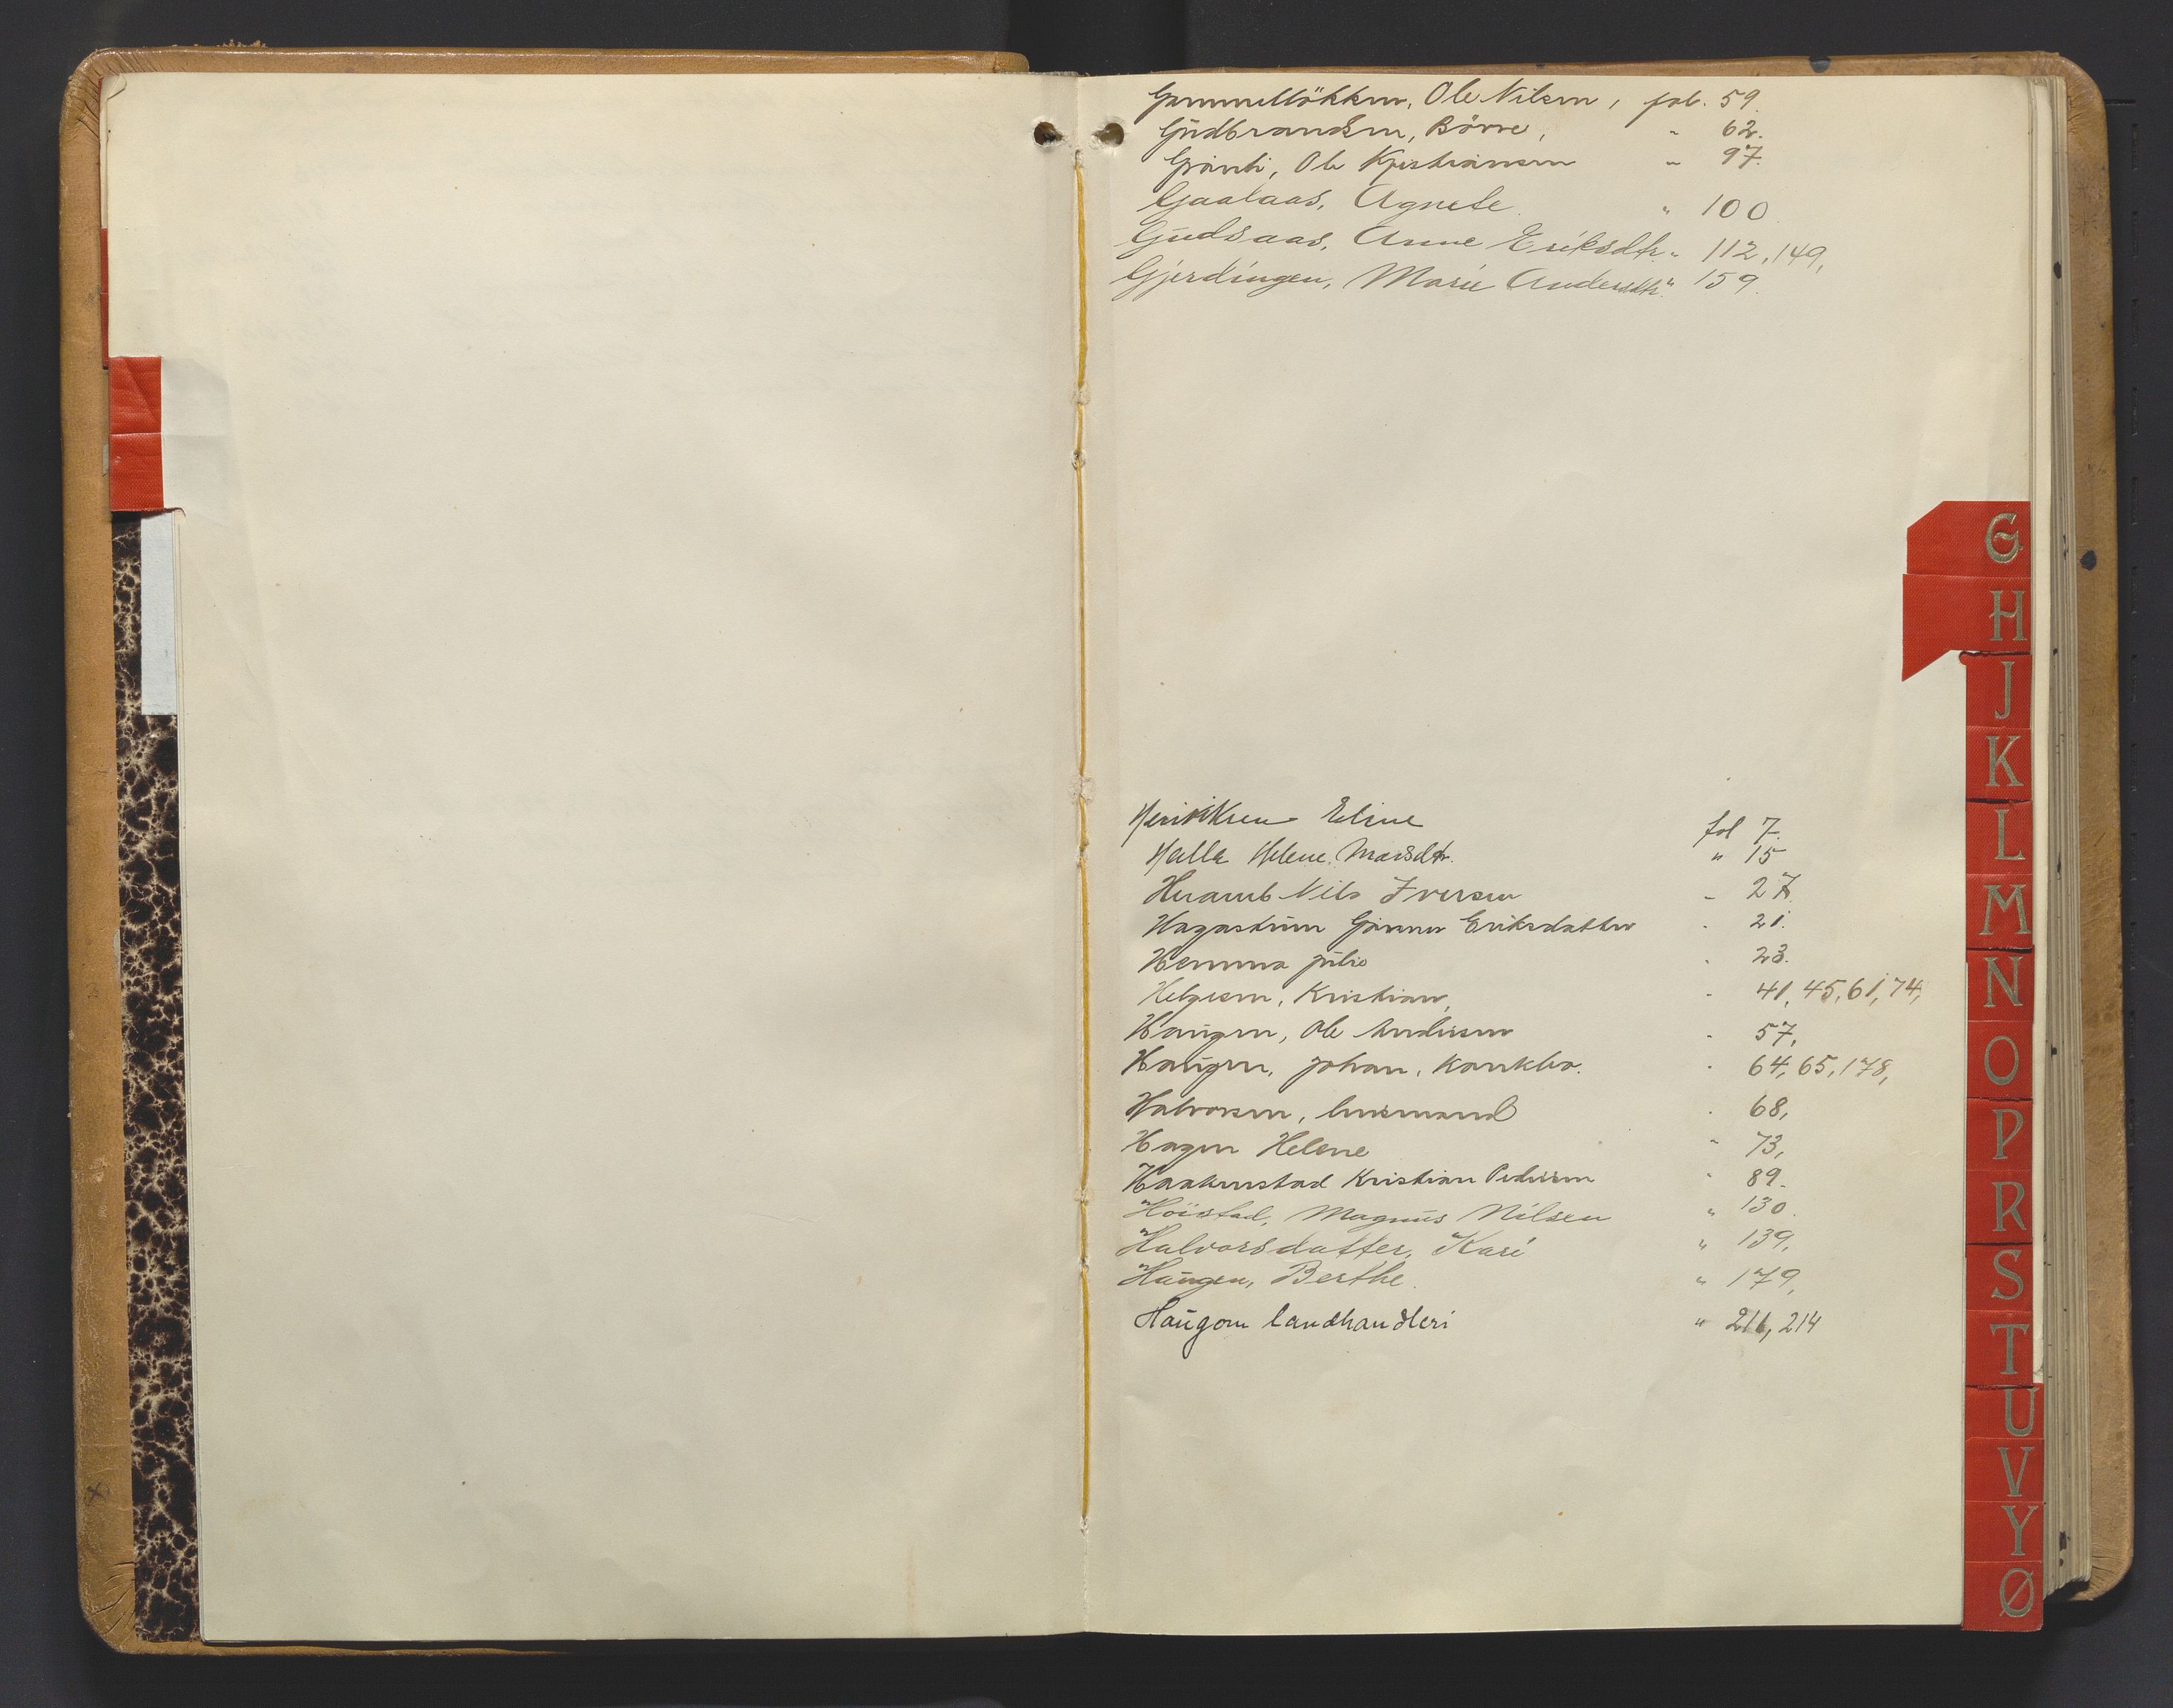 Gammelløkken, Ole Nilsen, fol. 59.
Gudbrandsen, Børre, " 62.
Ole Kristiansen " 97.
Gaalaas, Agnete. " 100.
Gudsaas, Anne Eriksdtr. " 112, 149,
Gjerdingen, Marie Andersdtr. " 159.
Henriksen Eline fol 7.
Halla Helene Marsdtr. " 15
Nils Iversen " 27.
Eriksdatter " 21.
Hemma julio " 23.
Helgesen, Kristian, " 41, 45, 61, 74,
Haugen, Ole Andersen " 57,
Haugen, Johan, " 64, 65, 178,
Halvorsen, " 68,
Hagen Helene " 73,
Haakenstad Kristian Pedersen " 89.
Höistad, Magnus Nilsen " 130.
Halvorsdatter, Kari " 139,
Haugen, Berthe. " 179,
Haugom landhandleri " 211, 214
G
H
J
K
L
M
N
O
P
R
S
T
U
V
Y
Ø